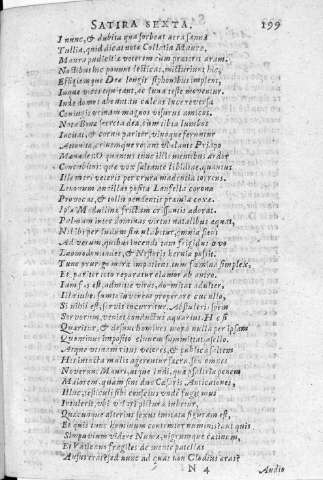 SATIRA SEXTA. 199
I nunc, & dubita qua sorbeat aera sanna
Tullia, quid dicat notæ Collatia Mauræ,
Maura pudicitiæ veterem cum præterit aram.
Noctibus hic ponunt lecticas, micturiunt hic,
Effigiemque Deæ longis siphonibus implent,
Inque vices equitant, ac luna teste moventur.
Inde domos abeunt: tu calcas luce reversa
Coniugis urinam magnos visurus amicos.
Nota Bonæ secreta deæ, cum tibia lumbos
Incitat, & cornu pariter, vinoque feruntur
Attonitæ, crinemque rotant ululante Priapo
Mænades. O quantus tunc illis mentibus ardor
Concubitus: quæ vox saltante libidine, quantus
Ille meri veteris per crura madentia torrens.
Lenonum ancillas posita Laufella corona
Provocat, & tollit pendentis præmia coxæ.
Ipsa Medullinæ frictum crissantis adorat.
Palmam inter dominas virtus natalibus æquat,
Nil ibi per ludum simulabitur, omnia fient
Ad verum, quibus incendi iam frigidus ævo
Laomedontiades, & Nestoris hernia possit.
Tunc prurigo moræ impatiens: tum fœmina simplex,
Et pariter toto reparatur clamor ab antro.
Iam fas est, admitte viros, dormitat adulter,
Illa iubet sumto iuvenem properare cucullo,
Si nihil est, servis incurritur. Abstuleris spem
Servorum, veniet conductus aquarius. Hic si
Quæritur, & desunt homines mora nulla per ipsam
Quominus imposito clunem summittat asello.
Atque utinam ritus veteres, & publica saltem
His intacta malis agerentur sacra, sed omnes
Noverunt Mauri, atque Indi, quæ psaltria penem
Maiorem, quam sint duo Cæsaris Anticatones,
Illuc, testiculi sibi conscius unde fugit mus
Intulerit, ubi velari pictura iubetur,
Quæcunque alterius sexus imitata figuram est,
Et quis tunc hominum contemtor numinis, aut quis
Simpuvium ridere Numæ, nigrumque catinum,
Et Vaticano fragiles de monte patellas
Ausus erat? sed nunc ad quas non Clodius aras?
N 4 Audio